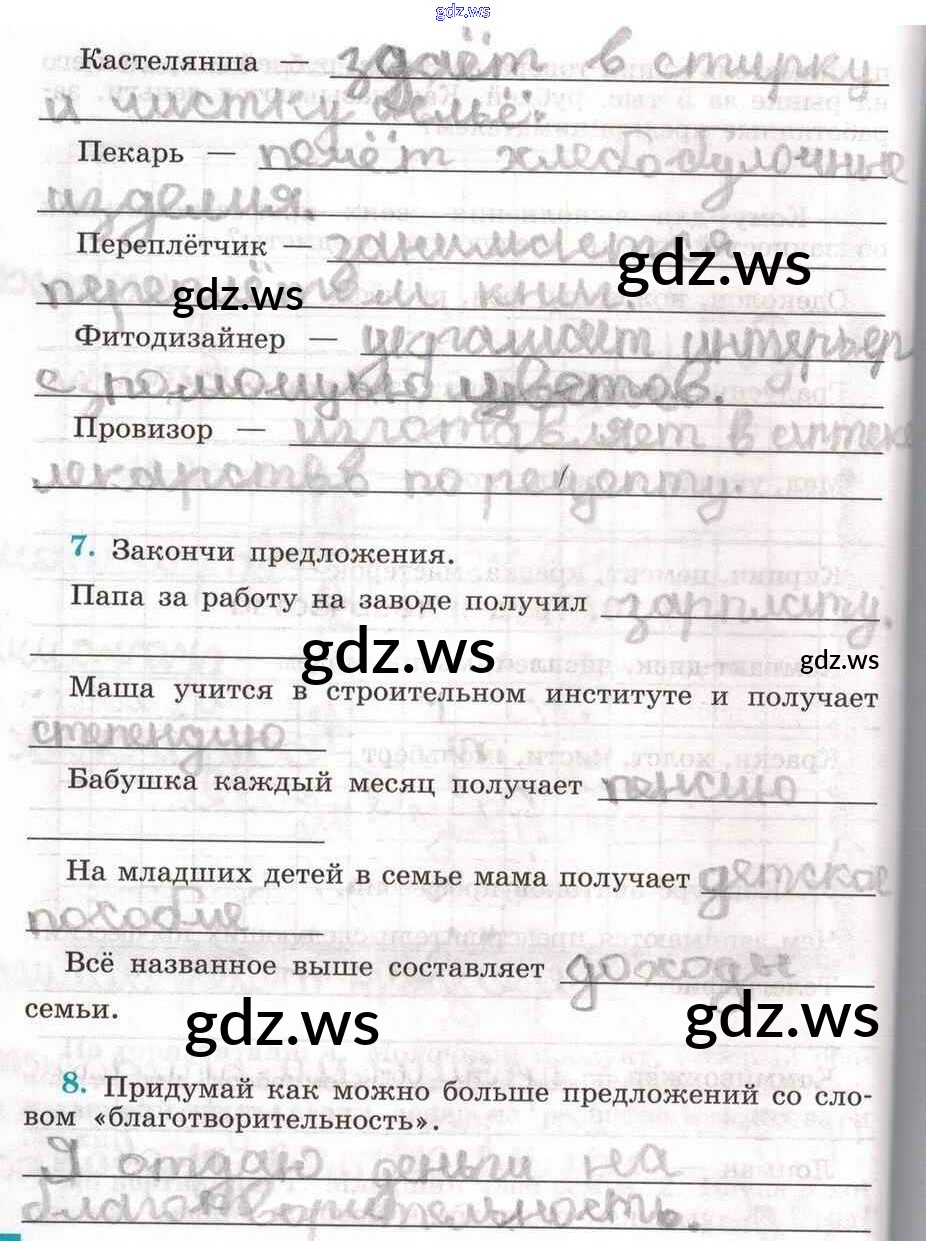 gdz.ws
Кастелянша — здаёт в стирку
и чистку бельё.
Пекарь — печёт хлебобулочные
изделия.
Переплётчик — занимается
gdz.ws
переплётом книг.
gdz.ws
Фитодизайнер — украшает интерьер
с помощью цветов.
Провизор — изготавляет в аптеке
лекарства по рецепту.
7. Закончи предложения.
Папа за работу на заводе получил зарплату.
gdz.ws
gdz.ws
Маша учится в строительном институте и получает
степендию
Бабушка каждый месяц получает пенсию
На младших детей в семье мама получает детское
пособие
Всё названное выше составляет доходы
семьи.
gdz.ws
gdz.ws
8. Придумай как можно больше предложений со сло-
вом «благотворительность».
Я отдаю деньги на
благотворительность.